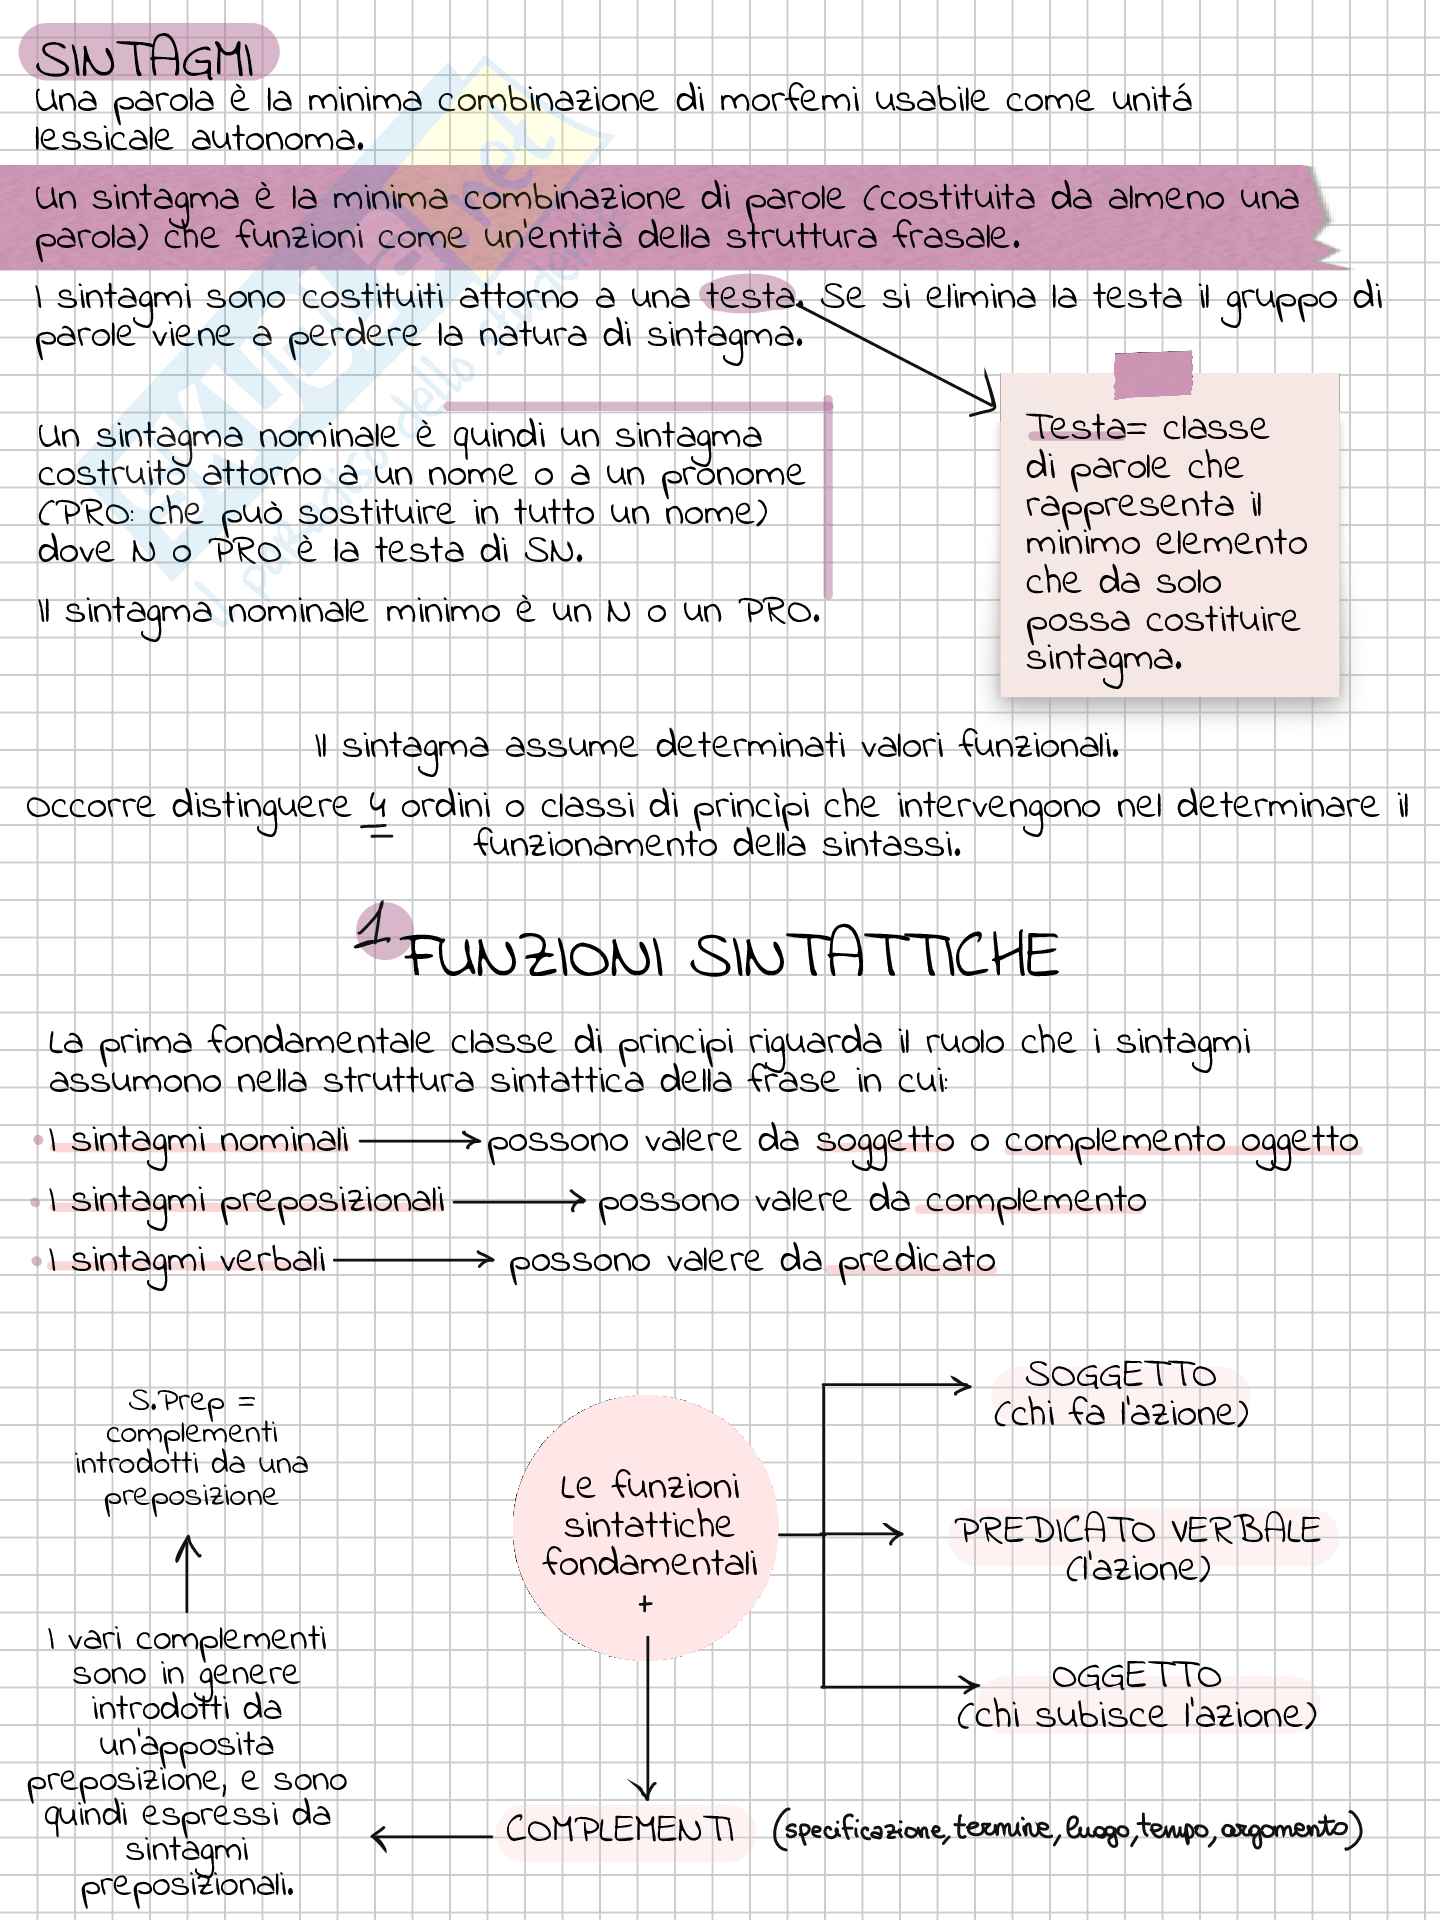 SINTAGMI
Una parola è la minima combinazione di morfemi usabile come unitá
lessicale autonoma.
Un sintagma è la minima combinazione di parole (costituita da almeno una
parola) che funzioni come un'entità della struttura frasale.
I sintagmi sono costituiti attorno a una testa. Se si elimina la testa il gruppo di
parole viene a perdere la natura di sintagma.
Un sintagma nominale è quindi un sintagma
costruito attorno a un nome o a un pronome
(PRO: che può sostituire in tutto un nome)
dove N o PRO è la testa di SN.
Il sintagma nominale minimo è un N o un PRO.
Testa= classe
di parole che
rappresenta il
minimo elemento
che da solo
possa costituire
sintagma.
Il sintagma assume determinati valori funzionali.
Occorre distinguere 4 ordini o classi di princìpi che intervengono nel determinare il
funzionamento della sintassi.
1 FUNZIONI SINTATTICHE
La prima fondamentale classe di princìpi riguarda il ruolo che i sintagmi
assumono nella struttura sintattica della frase in cui:
• I sintagmi nominali → possono valere da soggetto o complemento oggetto
• I sintagmi preposizionali → possono valere da complemento
• I sintagmi verbali → possono valere da predicato
S.Prep =
complementi
introdotti da una
preposizione
I vari complementi
sono in genere
introdotti da
un'apposita
preposizione, e sono
quindi espressi da
sintagmi
preposizionali.
Le funzioni
sintattiche
fondamentali
+
SOGGETTO
(chi fa l'azione)
PREDICATO VERBALE
(l'azione)
OGGETTO
(chi subisce l'azione)
COMPLEMENTI (specificazione, termine, luogo, tempo, argomento)